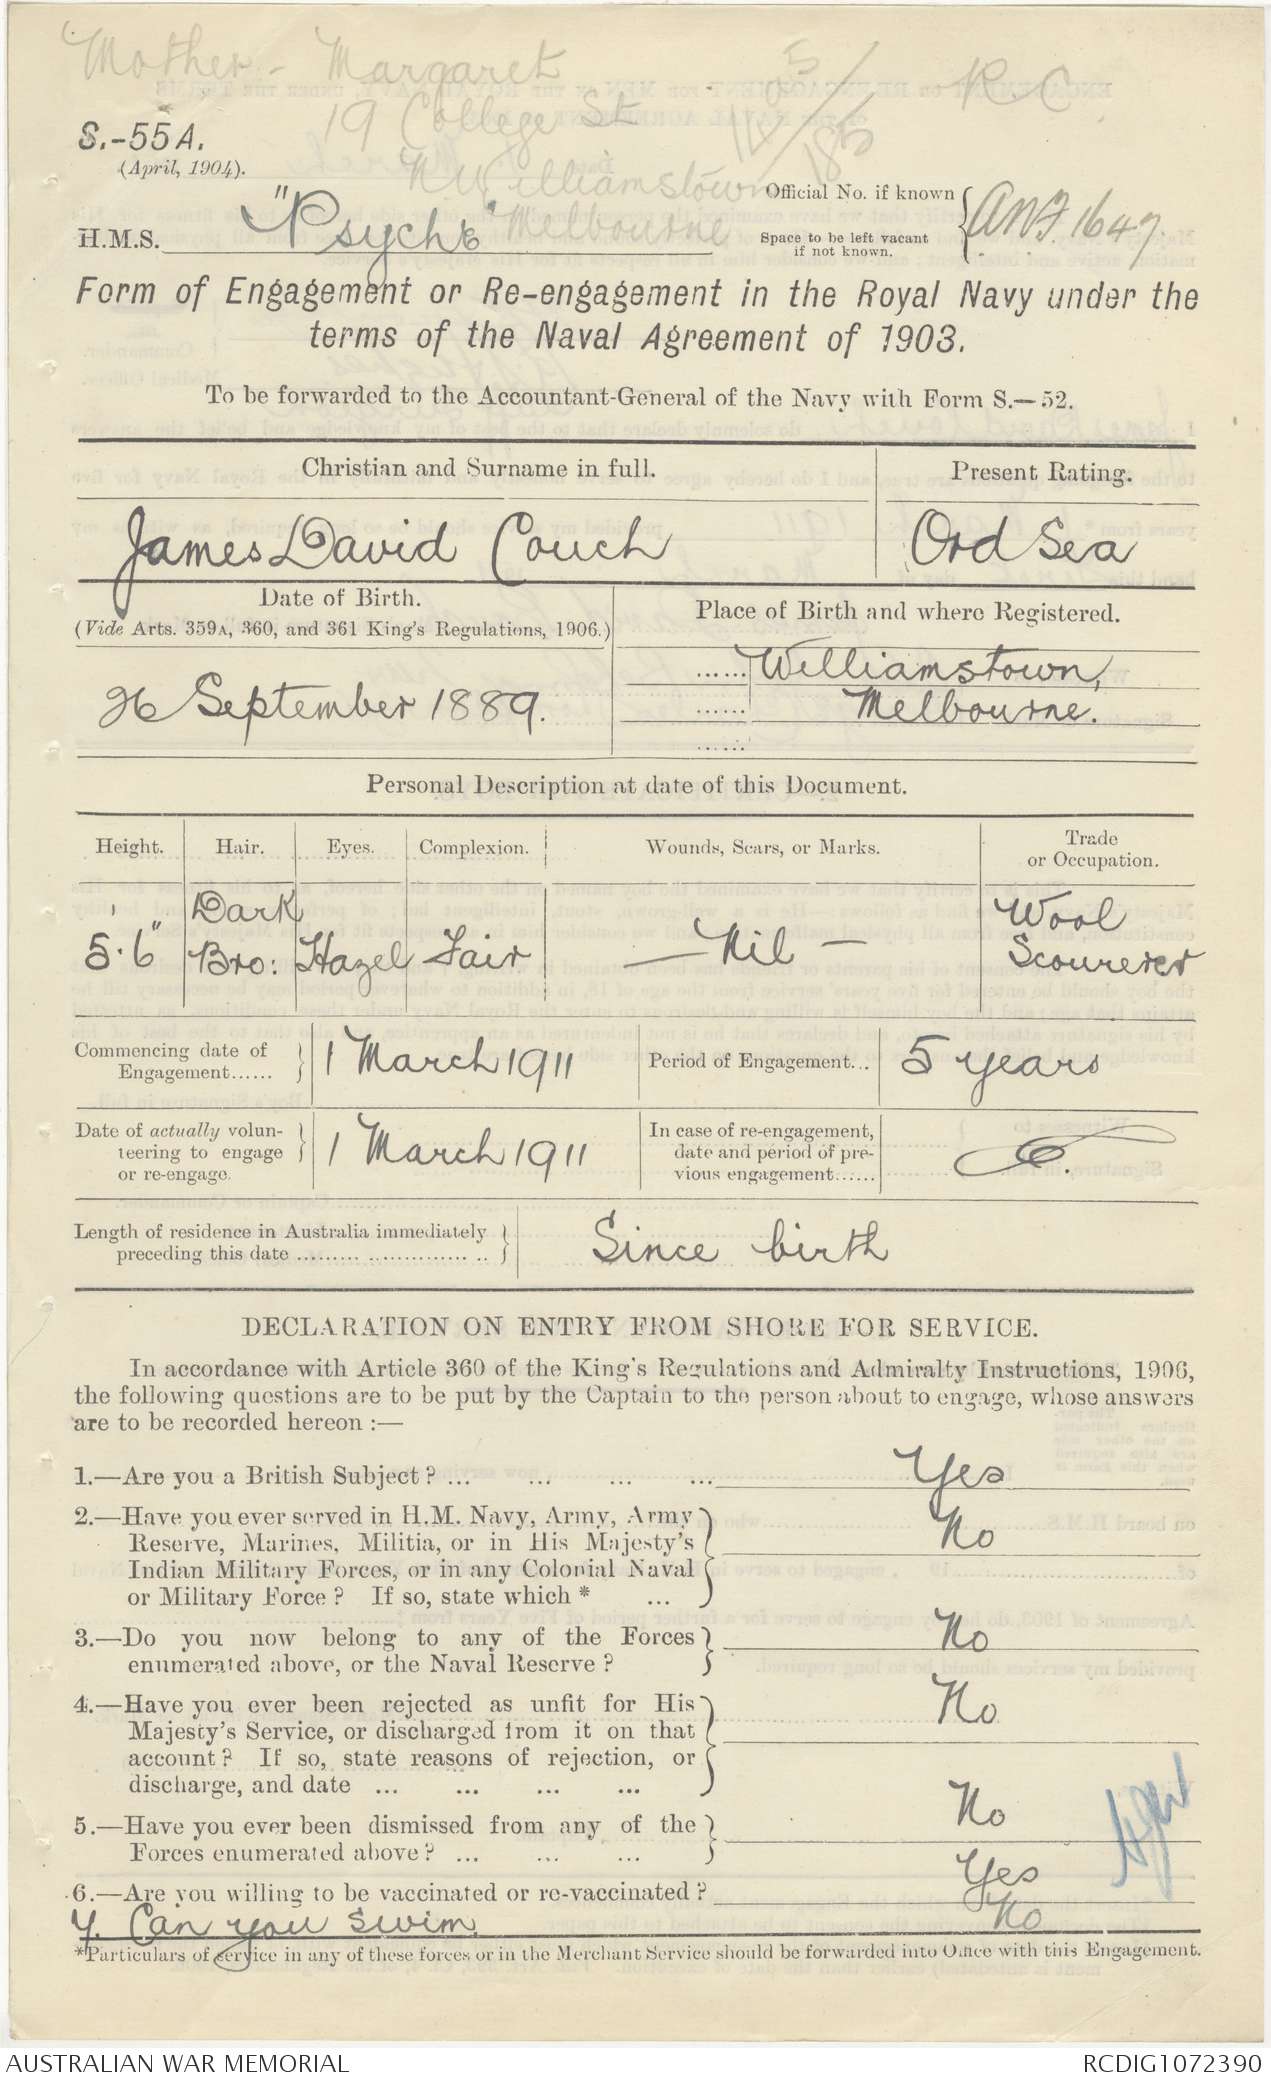 Mother - Margaret
19 College St
N Williamstown
Melbourne
R. C.
S.-55A.
(April, 1904).
H.M.S. "Psyche"
Official No. if known
Space to be left vacant
if not known.
ANF. 1647.
Form of Engagement or Re-engagement in the Royal Navy under the
terms of the Naval Agreement of 1903.
To be forwarded to the Accountant-General of the Navy with Form S.—52.
Christian and Surname in full.
Present Rating.
James David Couch
Ord Sea
Date of Birth.
(Vide Arts. 359A, 360, and 361 King's Regulations, 1906.)
Place of Birth and where Registered.
26 September 1889.
Williamstown,
Melbourne.
Personal Description at date of this Document.
Height. Hair. Eyes. Complexion. Wounds, Scars, or Marks. Trade
or Occupation.
5' 6" Dark
Bro: Hazel Fair — Nil — Wool
Scourerer
Commencing date of
Engagement......
1 March 1911
Period of Engagement...
5 years
Date of actually volun-
teering to engage
or re-engage.
1 March 1911
In case of re-engagement,
date and period of pre-
vious engagement......
Length of residence in Australia immediately
preceding this date
Since birth
DECLARATION ON ENTRY FROM SHORE FOR SERVICE.
In accordance with Article 360 of the King's Regulations and Admiralty Instructions, 1906,
the following questions are to be put by the Captain to the person about to engage, whose answers
are to be recorded hereon :—
1.—Are you a British Subject? ... ... ... ... Yes
2.—Have you ever served in H.M. Navy, Army, Army
Reserve, Marines, Militia, or in His Majesty's
Indian Military Forces, or in any Colonial Naval
or Military Force? If so, state which * ...
No
3.—Do you now belong to any of the Forces
enumerated above, or the Naval Reserve?
No
4.—Have you ever been rejected as unfit for His
Majesty's Service, or discharged from it on that
account? If so, state reasons of rejection, or
discharge, and date ... ... ... ...
No
5.—Have you ever been dismissed from any of the
Forces enumerated above? ... ... ...
No
6.—Are you willing to be vaccinated or re-vaccinated? Yes
7. Can you swim No
*Particulars of service in any of these forces or in the Merchant Service should be forwarded into Office with this Engagement.
AUSTRALIAN WAR MEMORIAL
RCDIG1072390